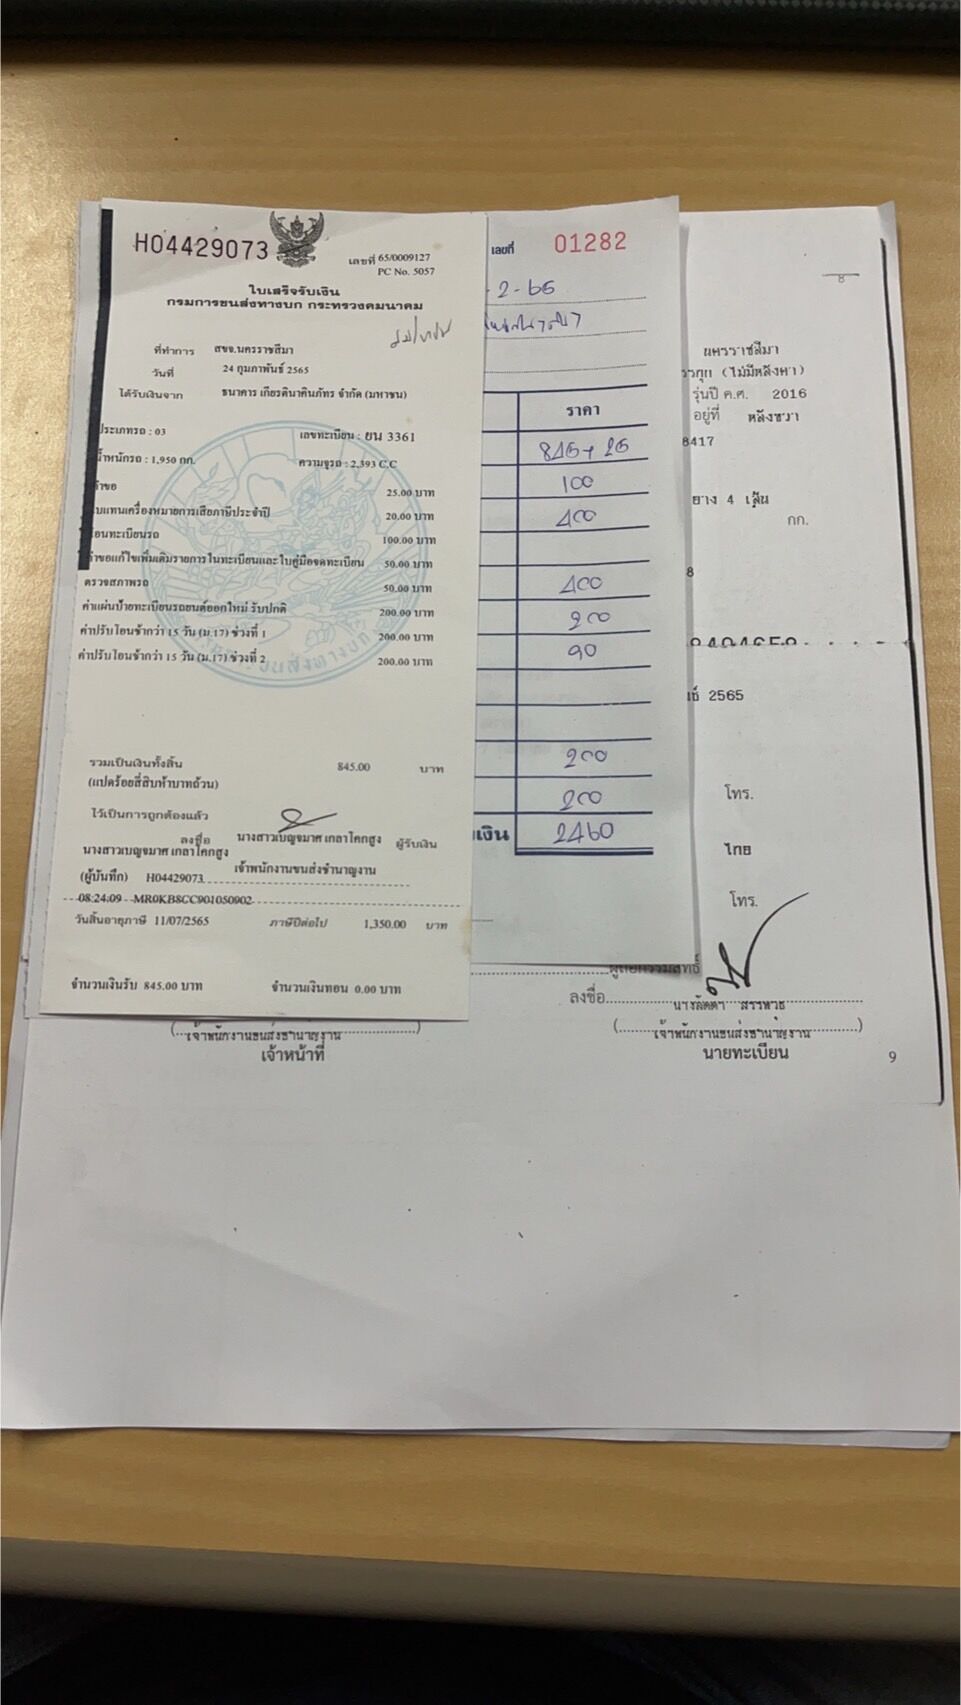 H04429073
เลขที่ 65/0009127
PC No. 5057
ใบเสร็จรับเงิน
กรมการขนส่งทางบก กระทรวงคมนาคม
ที่ทำการ สขจ.นครราชสีมา
วันที่ 24 กุมภาพันธ์ 2565
ได้รับเงินจาก ธนาคาร เกียรตินาคินภัทร จำกัด (มหาชน)
ประเภทรถ : 03 เลขทะเบียน : ยน 3361
น้ำหนักรถ : 1,950 กก. ความจุรถ : 2,393 C.C
คำขอ 25.00 บาท
แทนเครื่องหมายการเสียภาษีประจำปี 20.00 บาท
โอนทะเบียนรถ 100.00 บาท
คำขอแก้ไขเพิ่มเติมรายการในทะเบียนและใบคู่มือจดทะเบียน 50.00 บาท
ตรวจสภาพรถ 50.00 บาท
ค่าแผ่นป้ายทะเบียนรถยนต์ออกใหม่ รับปกติ 200.00 บาท
ค่าปรับโอนช้ากว่า 15 วัน (ม.17) ช่วงที่ 1 200.00 บาท
ค่าปรับโอนช้ากว่า 15 วัน (ม.17) ช่วงที่ 2 200.00 บาท
รวมเป็นเงินทั้งสิ้น 845.00 บาท
(แปดร้อยสี่สิบห้าบาทถ้วน)
ไว้เป็นการถูกต้องแล้ว
ลงชื่อ นางสาวเบญจมาศ เกลาโคกสูง ผู้รับเงิน
นางสาวเบญจมาศ เกลาโคกสูง
(ผู้บันทึก) H04429073 เจ้าพนักงานขนส่งชำนาญงาน
08:24:09 MR0KB8CC901050902
วันสิ้นอายุภาษี 11/07/2565 ภาษีปีต่อไป 1,350.00 บาท
จำนวนเงินรับ 845.00 บาท จำนวนเงินทอน 0.00 บาท
เลขที่ 01282
-2-65
ราคา
845+25
100
400
400
200
90
200
200
เงิน 2460
8
นครราชสีมา
(ไม่มีหลังคา)
รุ่นปี ค.ศ. 2016
อยู่ที่ หลังขวา
8417
ยาง 4 เส้น
กก.
8
2565
โทร.
ไทย
โทร.
ลงชื่อ
(เจ้าพนักงานขนส่งชำนาญงาน)
เจ้าหน้าที่
(เจ้าพนักงานขนส่งชำนาญงาน)
นายทะเบียน
9